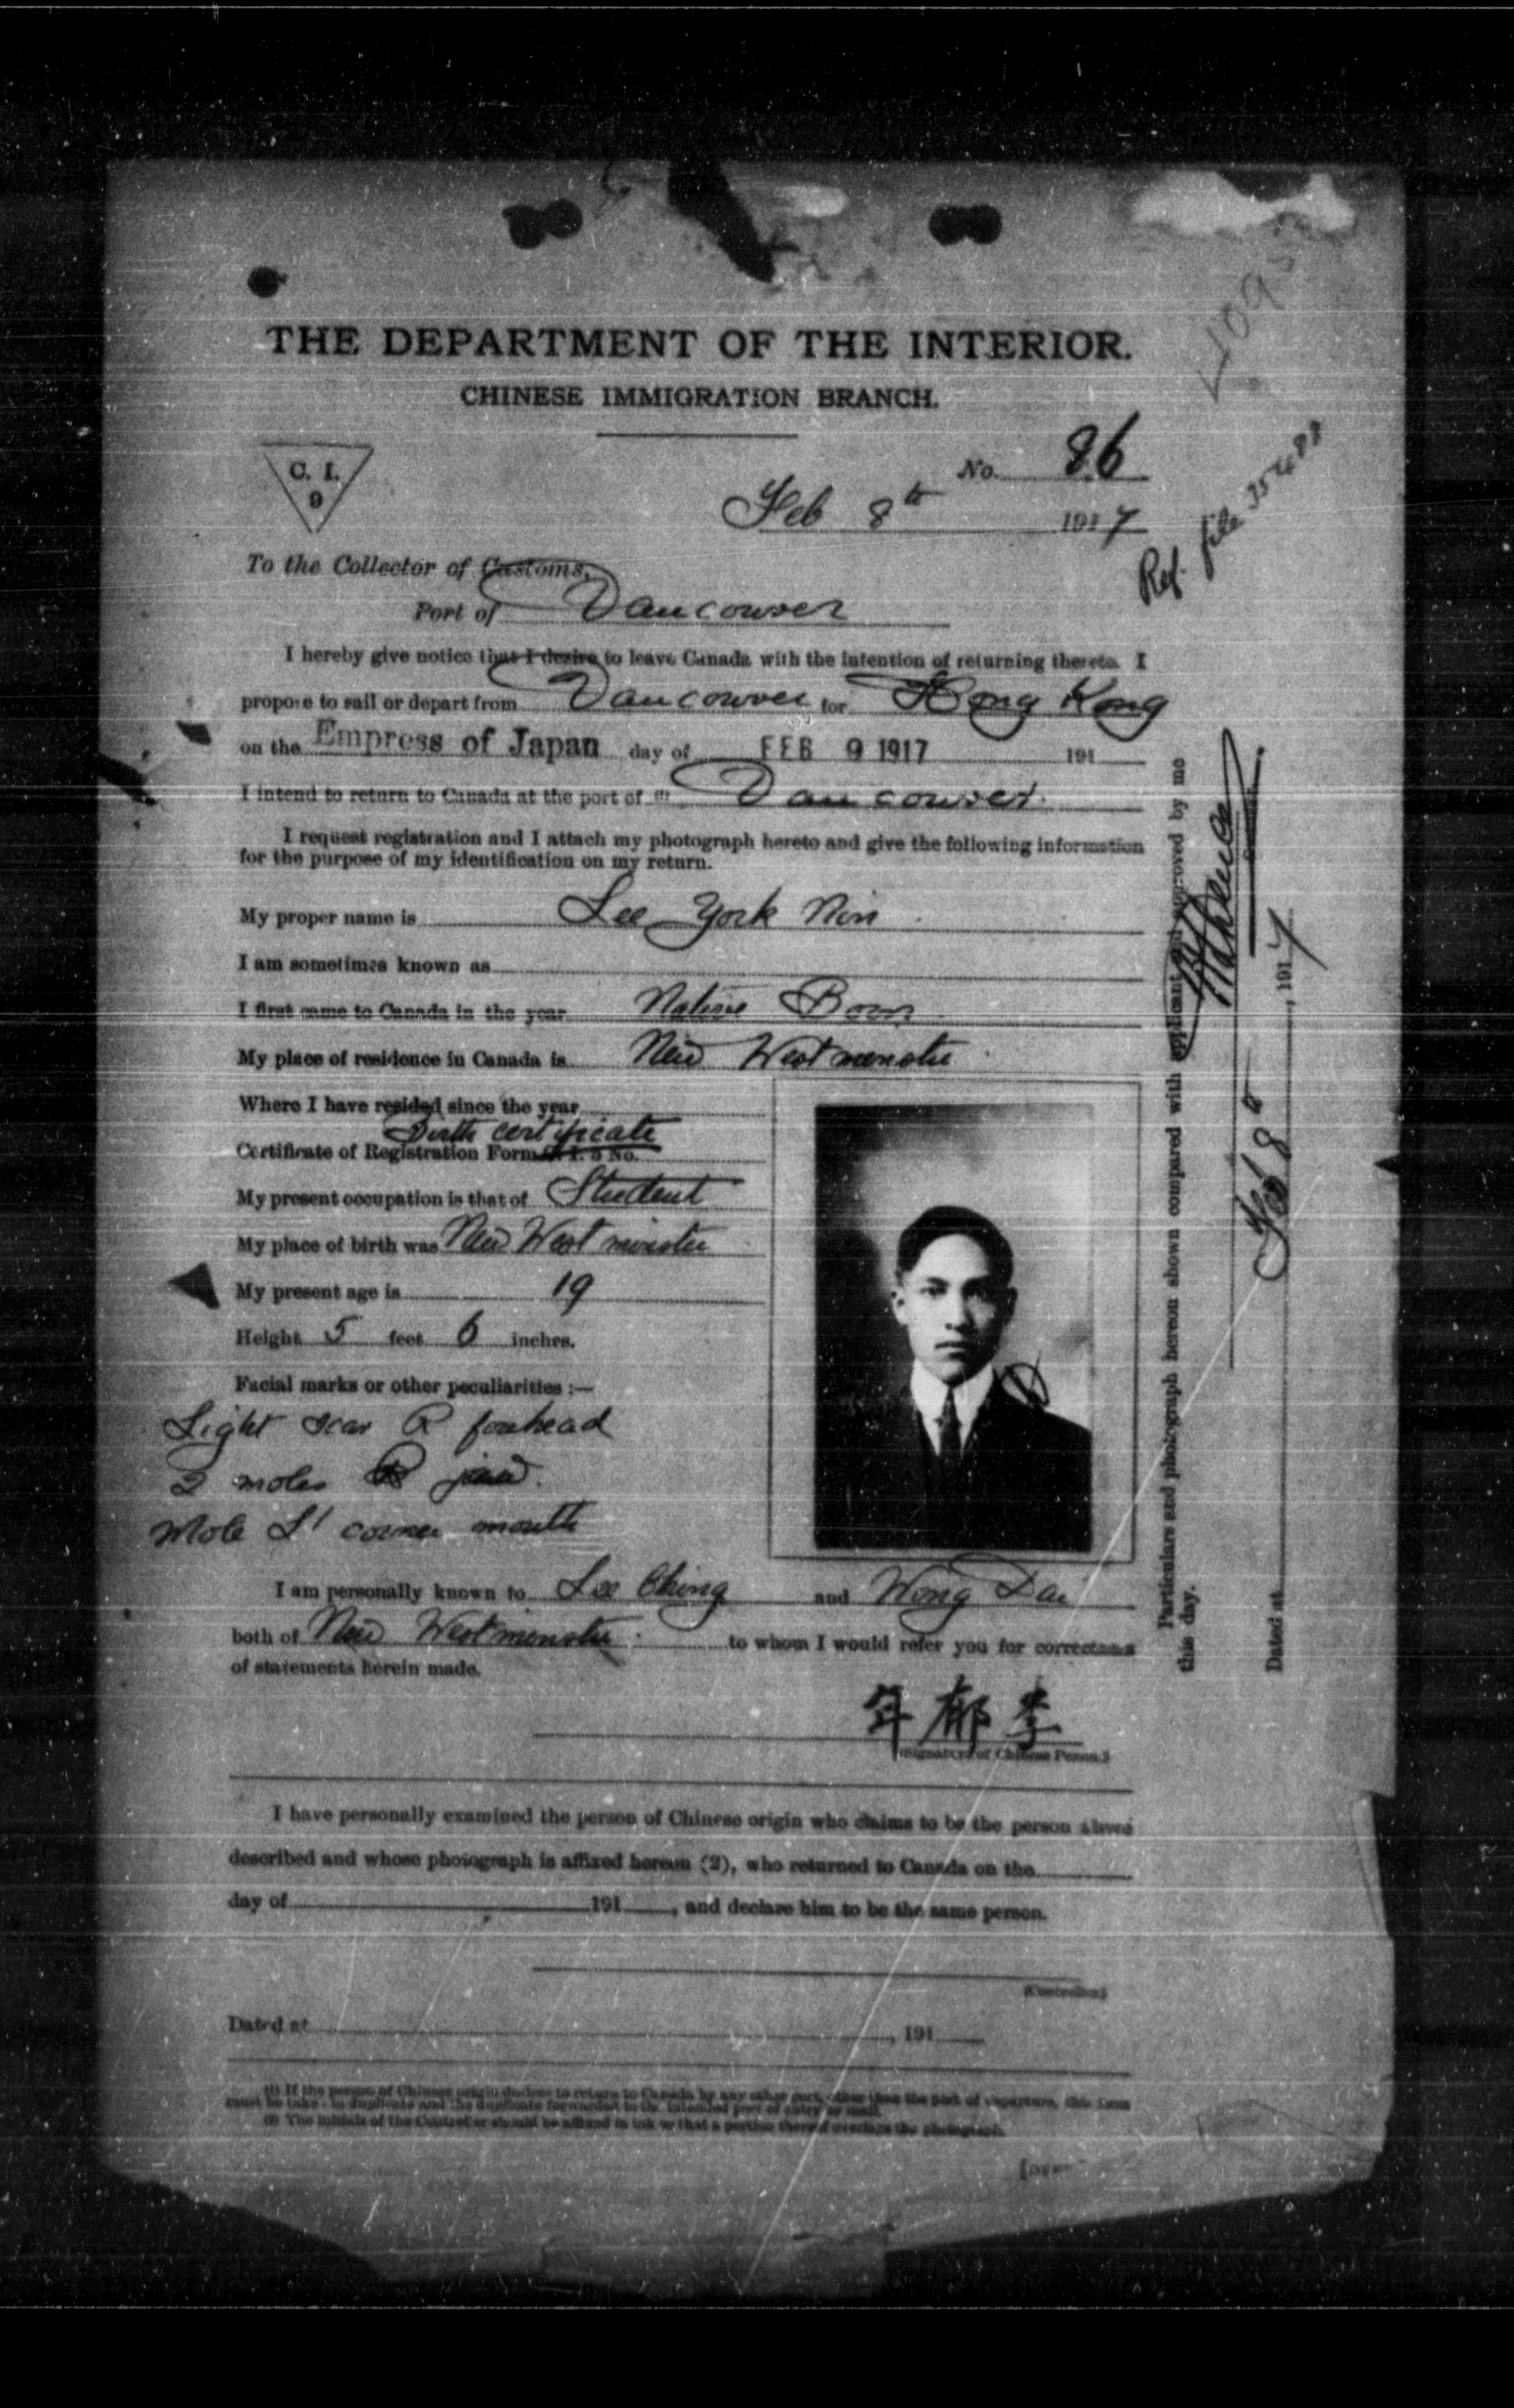 THE DEPARTMENT OF THE INTERIOR.
CHINESE IMMIGRATION BRANCH.
C. I.
9
No. 86
Feb 8th 1917
Ref. file
To the Collector of Customs,
Port of Vancouver
I hereby give notice that I desire to leave Canada with the intention of returning thereto. I
propose to sail or depart from Vancouver for Hong Kong
on the Empress of Japan day of FEB 9 1917 191
I intend to return to Canada at the port of (1) Vancouver.
I request registration and I attach my photograph hereto and give the following information
for the purpose of my identification on my return.
My proper name is Lee York Nin
I am sometimes known as
I first came to Canada in the year Native Born
My place of residence in Canada is New Westminster
Where I have resided since the year
Birth certificate
Certificate of Registration Form C. I. 5 No.
My present occupation is that of Student
My place of birth was New Westminster
My present age is 19
Height 5 feet 6 inches.
Facial marks or other peculiarities :—
Light scar R forehead
2 moles R jaw.
Mole L corner mouth
I am personally known to Lee Ching and Wong Dai
both of New Westminster to whom I would refer you for correctness
of statements herein made.
年郁李
(Signature of Chinese Person.)
I have personally examined the person of Chinese origin who claims to be the person above
described and whose photograph is affixed hereon (2), who returned to Canada on the
day of 191 , and declare him to be the same person.
(Controller)
Dated at , 191
(1) If the person of Chinese origin desires to return to Canada by any other port, other than the port of departure, this form
must be taken in duplicate and the duplicate forwarded to the intended port of entry by mail.
(2) The initials of the Controller should be affixed in ink so that a portion thereof overlaps the photograph.
[over
Particulars and photograph hereon shown compared with applicant and approved by me
this day.
Dated at Feb 8 , 1917